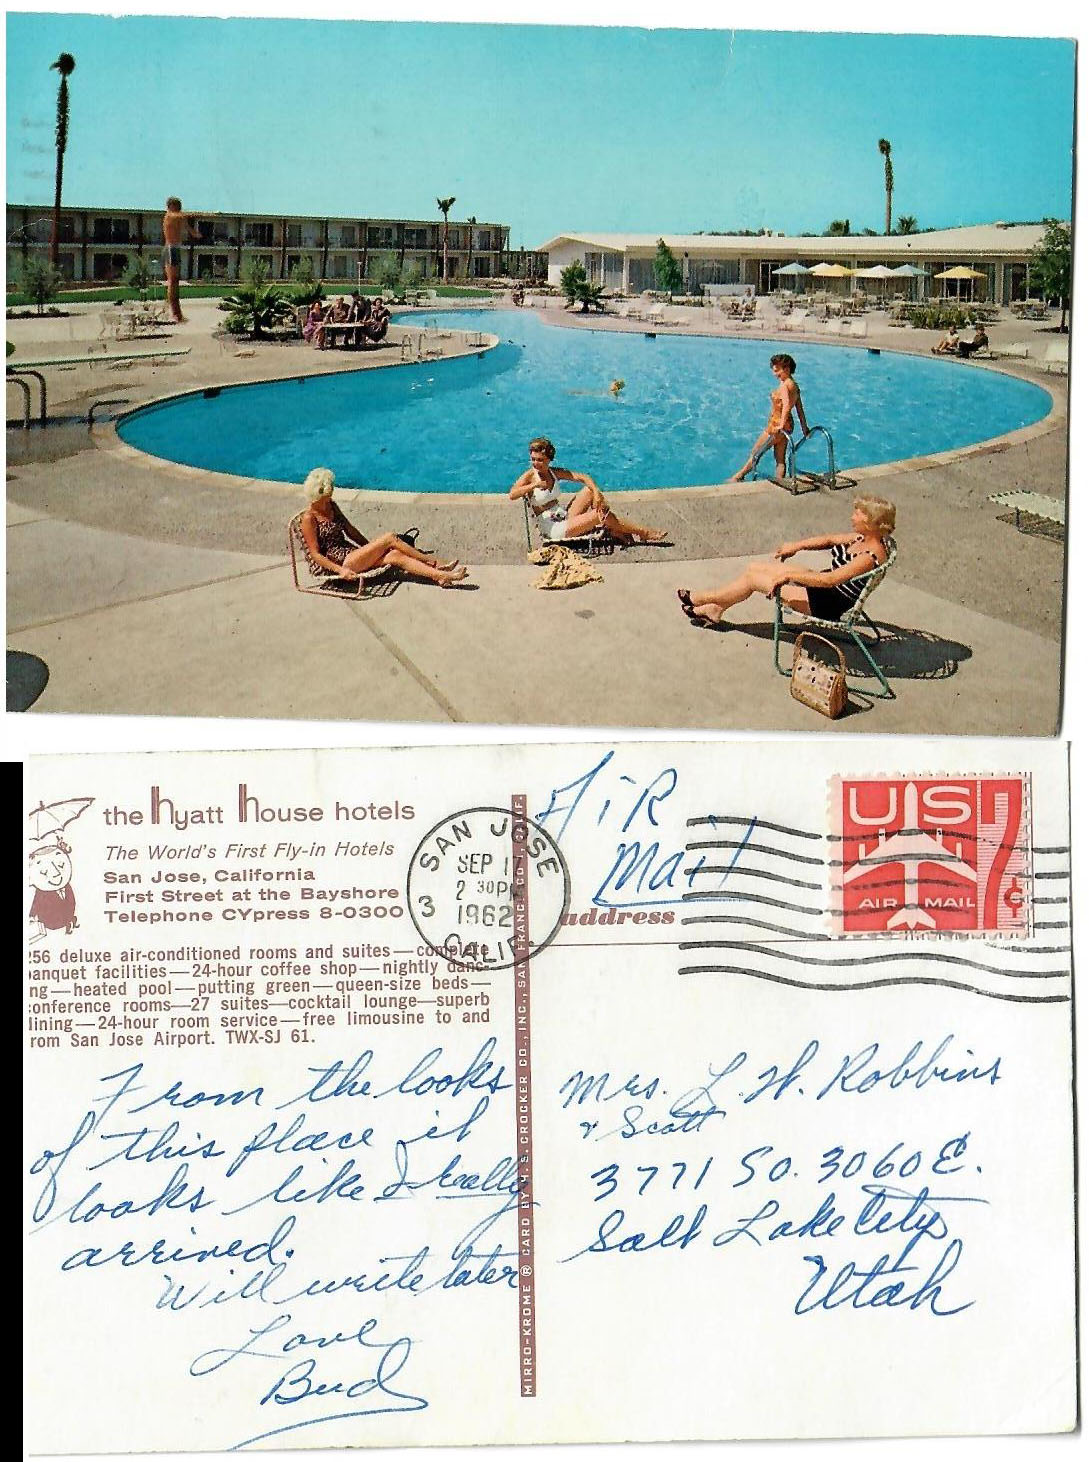 the hyatt house hotels
The World's First Fly-in Hotels
San Jose, California
First Street at the Bayshore
Telephone CYpress 8-0300
256 deluxe air-conditioned rooms and suites—complete
banquet facilities—24-hour coffee shop—nightly danc-
ng—heated pool—putting green—queen-size beds—
conference rooms—27 suites—cocktail lounge—superb
dining—24-hour room service—free limousine to and
from San Jose Airport. TWX-SJ 61.
From the looks
of this place it
looks like I really
arrived.
Will write later
Love
Bud
MIRRO-KROME ® CARD BY H. S. CROCKER CO., INC., SAN FRANCISCO, CALIF.
SAN JOSE
SEP 17
2 30PM
1962
3
CALIF.
AiR
Mail
address
US
7¢
AIR MAIL
Mrs. L. H. Robbins
& Scott
3771 So. 3060 E.
Salt Lake City
Utah